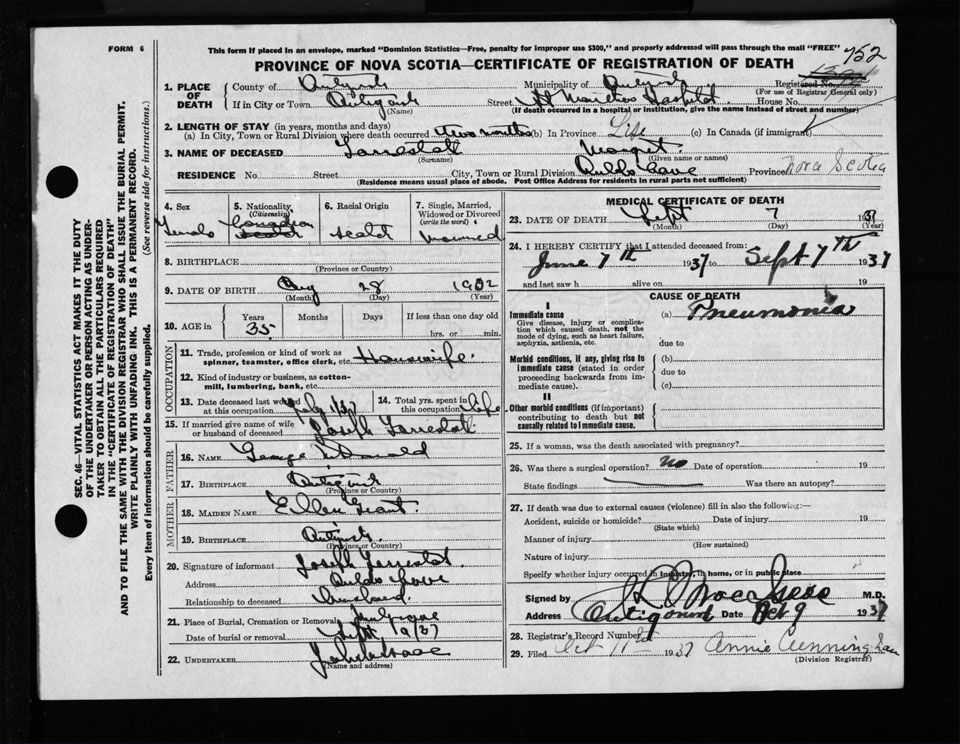 FORM 6
This form if placed in an envelope, marked "Dominion Statistics—Free, penalty for improper use $300," and properly addressed will pass through the mail "FREE"
752
PROVINCE OF NOVA SCOTIA—CERTIFICATE OF REGISTRATION OF DEATH
1. PLACE OF DEATH
County of Municipality of Registered No.
(For use of Registrar General only)
If in City or Town Street Hospital House No.
(Name) (If death occurred in a hospital or institution, give the name instead of street and number)
2. LENGTH OF STAY (in years, months and days)
(a) In City, Town or Rural Division where death occurred two months (b) In Province Life (c) In Canada (if immigrant)
3. NAME OF DECEASED
(Surname) (Given name or names)
RESIDENCE No. Street City, Town or Rural Division Province Nova Scotia
(Residence means usual place of abode. Post Office Address for residents in rural parts not sufficient)
4. Sex Female
5. Nationality (Citizenship) Canadian
6. Racial Origin
7. Single, Married, Widowed or Divorced (write the word) Married
8. BIRTHPLACE
(Province or Country)
9. DATE OF BIRTH Aug 28 1902
(Month) (Day) (Year)
10. AGE in Years Months Days If less than one day old
35 hrs. or min.
OCCUPATION
11. Trade, profession or kind of work as spinner, teamster, office clerk, etc. Housewife
12. Kind of industry or business, as cotton-mill, lumbering, bank, etc.
13. Date deceased last worked at this occupation July 1/37
14. Total yrs. spent in this occupation life
15. If married give name of wife or husband of deceased Joseph
FATHER
16. NAME George
17. BIRTHPLACE
(Province or Country)
MOTHER
18. MAIDEN NAME Ellen Grant
19. BIRTHPLACE
(Province or Country)
20. Signature of informant Joseph
Address
Relationship to deceased husband
21. Place of Burial, Cremation or Removal
Date of burial or removal Sept
22. UNDERTAKER
(Name and address)
MEDICAL CERTIFICATE OF DEATH
23. DATE OF DEATH Sept 7 1937
(Month) (Day) (Year)
24. I HEREBY CERTIFY that I attended deceased from:
June 7th 1937 to Sept 7th 1937
and last saw h alive on 19
CAUSE OF DEATH
I
Immediate cause (a) Pneumonia
Give disease, injury or complication which caused death, not the mode of dying, such as heart failure, asphyxia, asthenia, etc.
due to
Morbid conditions, if any, giving rise to immediate cause (stated in order proceeding backwards from immediate cause).
(b)
due to
(c)
II
Other morbid conditions (if important) contributing to death but not causally related to immediate cause.
25. If a woman, was the death associated with pregnancy?
26. Was there a surgical operation? no Date of operation 19
State findings Was there an autopsy?
27. If death was due to external causes (violence) fill in also the following:—
Accident, suicide or homicide? Date of injury 19
(State which)
Manner of injury
(How sustained)
Nature of injury
Specify whether injury occurred in industry, in home, or in public place
Signed by M.D.
Address Date Oct 9 1937
28. Registrar's Record Number
29. Filed Oct 11th 1937 Annie Cunningham
(Division Registrar)
SEC. 46—VITAL STATISTICS ACT MAKES IT THE DUTY
OF THE UNDERTAKER OR PERSON ACTING AS UNDER-
TAKER TO OBTAIN ALL THE PARTICULARS REQUIRED
IN THE "CERTIFICATE OF REGISTRATION OF DEATH"
AND TO FILE THE SAME WITH THE DIVISION REGISTRAR WHO SHALL ISSUE THE BURIAL PERMIT.
WRITE PLAINLY WITH UNFADING INK. THIS IS A PERMANENT RECORD.
Every item of information should be carefully supplied. (See reverse side for instructions.)